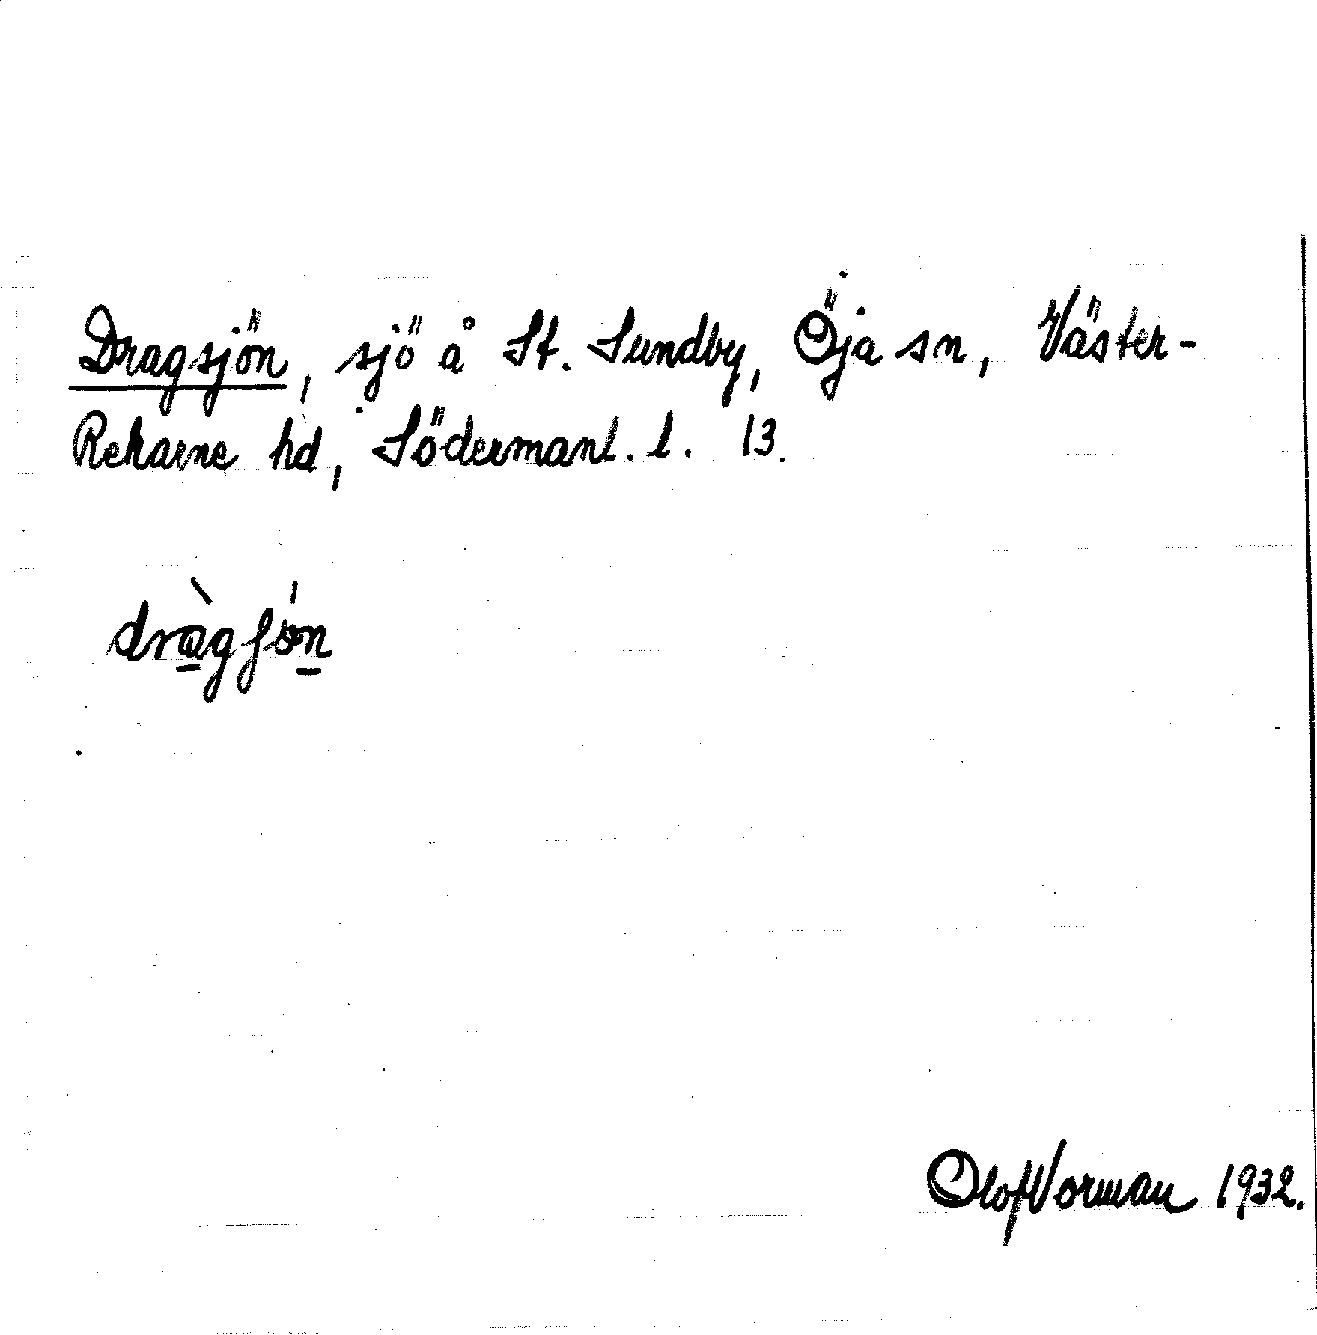 Dragsjön, sjö å St. Sundby, Öja sn, Väster-
Rekarne hd, Södermanl. l. 13.
drà̠gʃö́n̠
Olof Norman 1932.